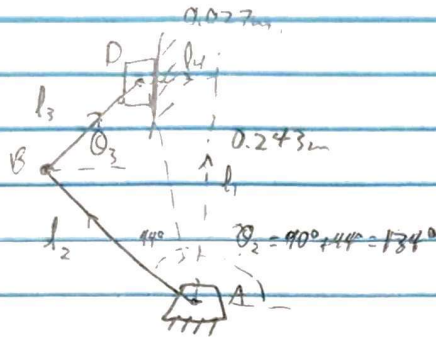 0.027m
D
l₄
l₃
θ₃
0.243m
B
l₁
l₂
44°
θ₂ = 90° + 44° = 134°
A